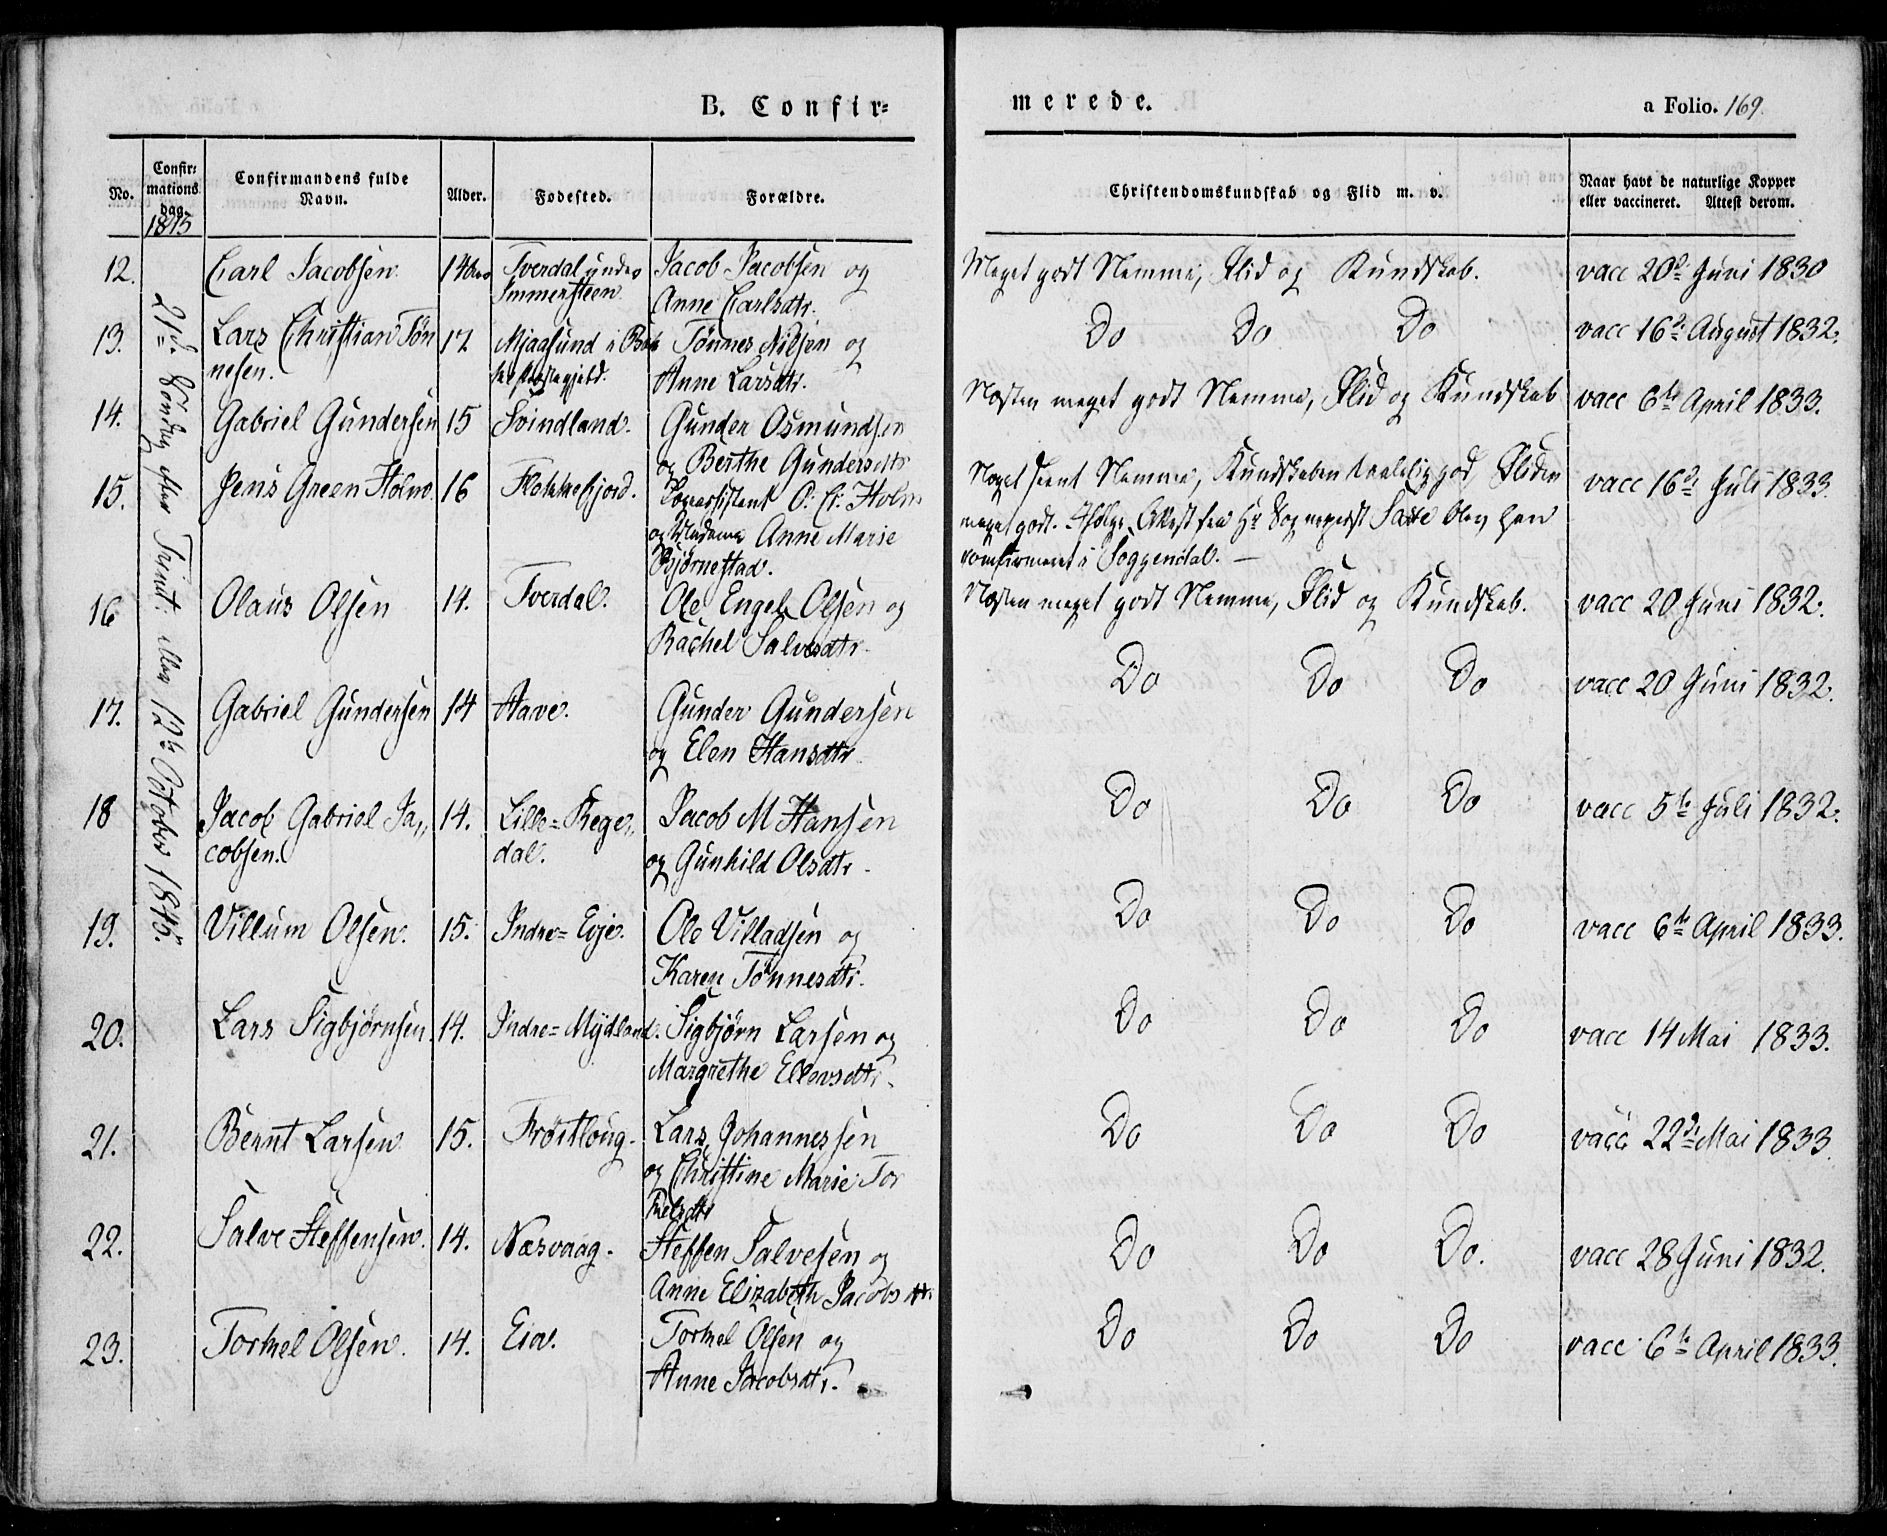 B. Confir=
merede.
a Folio. 169.
No.
Confir=
mations
dag.
Confirmandens fulde
Navn.
Alder.
Fødested.
Forældre.
Christendomskundskab og Flid m. v.
Naar havt de naturlige Kopper
eller vaccineret. Attest derom.
1845
21de Søndag efter Trinit: 12te October 1845.
12. Carl Jacobsen 14 Tverdal under Jacob Jacobsen og Meget godt Nemme, Flid og Kundskab. vacc 20de Juni 1830
Immersteen. Anne Carlsdtr.
13. Lars Christian Tøn 17 Mjaasund i Tønnes Nilsen og Do Do Do vacc 16de August 1832.
nesen. Anne Larsdtr.
14. Gabriel Gundersen 15 Svindland. Gunder Osmundsen Næsten meget godt Nemme, Flid og Kundskab vacc 6te April 1833.
og Berthe Gundersdtr
15. Jens Green Holm 16 Flekkefjord. O: Holm Noget seent Nemme, Kundskaben taalelig god, Fliden vacc 16de Juli 1833.
og Madame Anne Marie meget godt. Ifølge Attest fra Hr Sogneprest blev han
Bjørnestad. confirmeret i Soggendal. —
16 Olaus Olsen 14. Tverdal. Ole Engel Olsen og Næsten meget godt Nemme, Flid og Kundskab. vacc 20 Juni 1832.
Rachel Salvesdtr.
17. Gabriel Gundersen 14 Aave. Gunder Gundersen Do Do Do vacc 20 Juni 1832.
og Elen Hansdtr.
18 Jacob Gabriel Ja„ 14. Lille=Rege„ Jacob M Hansen Do Do Do vacc 5te Juli 1832.
cobsen. dal. og Gunhild Olsdtr.
19. Villum Olsen. 15. Indre=Eije. Ole Villadsen og Do Do Do vacc 6te April 1833.
Karen Tønnesdtr.
20. Lars Sigbjørnsen 14. Indre=Mydland. Sigbjørn Larsen og Do Do Do vacc 14 Mai 1833.
Margrethe Ellevsdtr.
21. Bernt Larsen 15. Frøstloug. Lars Johannessen Do Do Do vacc 22de Mai 1833.
og Christine Marie Tor
kelsdtr
22. Salve Steffensen. 14. Næsvaag. Steffen Salvesen og Do Do Do. vacc 28 Juni 1832.
Anne Elizabeth Jacobsdtr.
23. Torkel Olsen. 14. Eia. Torkel Olsen og Do Do Do vacc 6te April 1833.
Anne Jacobsdtr.